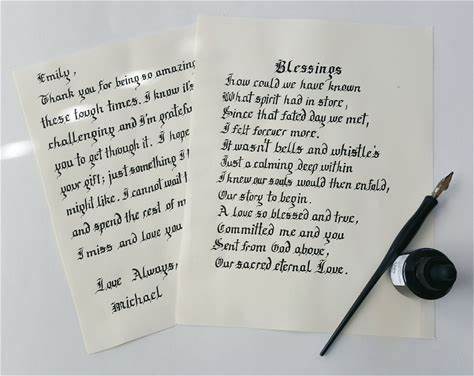 Emily,
Thank you for being so amazing
these tough times. I know it's
challenging and I'm grateful
you to get through it. I hope
your gift; just something I
might like. I cannot wait
and spend the rest of m
I miss and love you
Love Always,
Michael
Blessings
How could we have known
What spirit had in store,
Since that fated day we met,
I felt forever more.
It wasn't bells and whistle's
Just a calming deep within
I knew our souls would then enfold,
Our story to begin.
A love so blessed and true,
Committed me and you
Sent from God above,
Our sacred eternal Love.